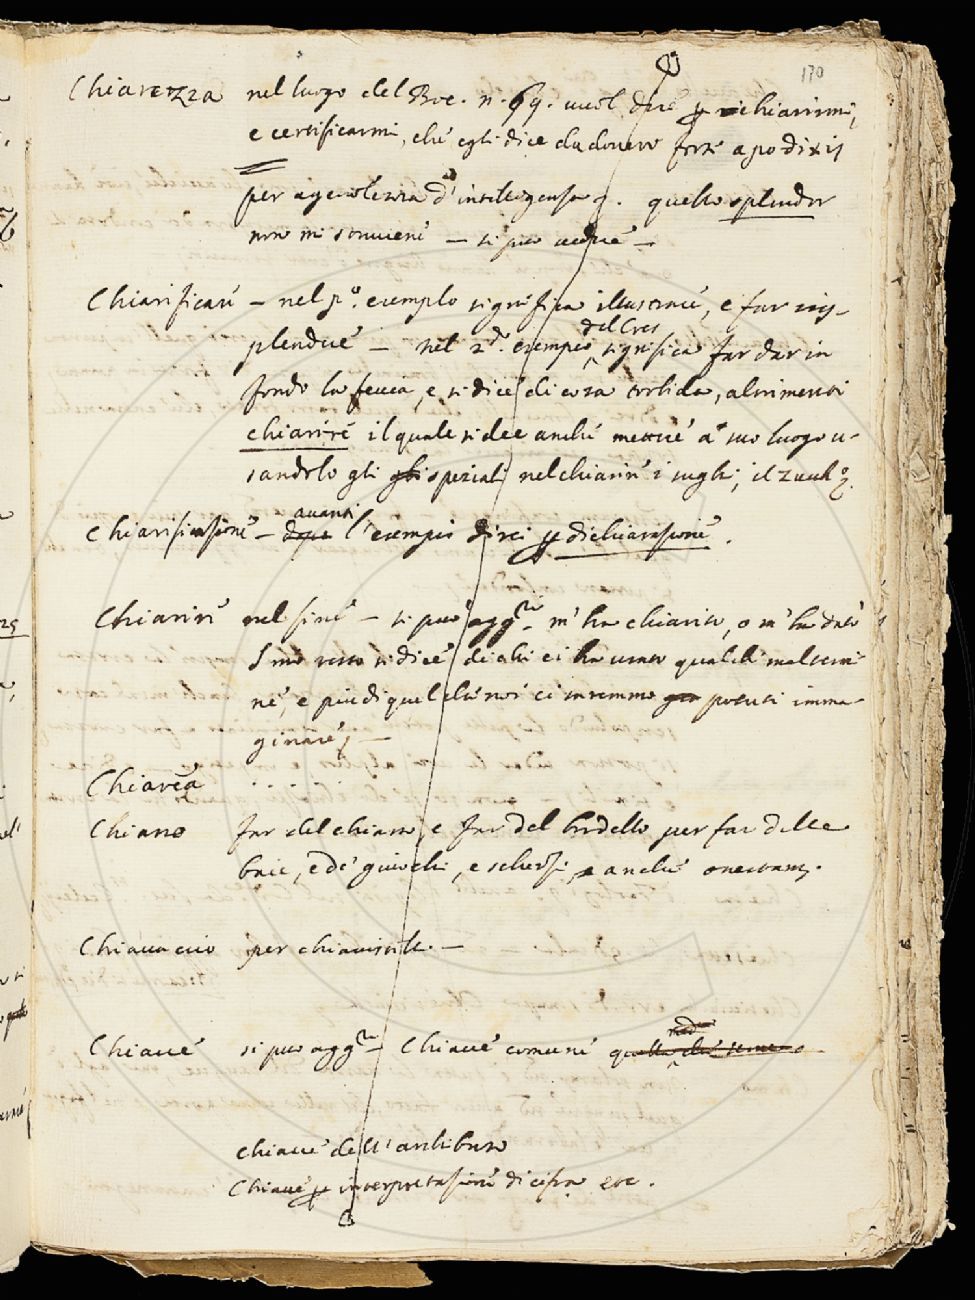 130
Chiarezza nel luogo del Boc. n. 69. vuol dire p chiarirmi,
e certificarmi, che egli dice da dovero apodixis
per agevolezza d'intelligenza. quello splendor
non mi sovviene — si può vedere —
Chiarificare — nel p.º esempio significa illustrare, e far ris-
plendere — nel 2.º esempio del Cres significa far dar in
fondo la feccia, e si dice di cosa torbida, altrimenti
chiarire il quale si dee anche mettere a suo luogo u-
sandolo gli gli speziali nel chiarire i sughi, il zucch.º
Chiarificazione — dopo avanti l'esempio direi p dichiarazione.
Chiarire nel fine — si può agg.re m'ha chiarito, o m'ha dato
si dice di chi ci ha usato qualche mal termi-
ne, e più di quel che noi ci saremmo potuti imma-
ginare, —
Chiarea . . . .
Chiaro far del chiaro, e far del bordello per far delle
baie, e de' giuochi, e scherzi, e anche onestam.
Chiavaccio per chiavistello. —
Chiave si può agg.re — Chiave comune
chiave dell'archibuso
Chiave p interpretazione di cifra etc.